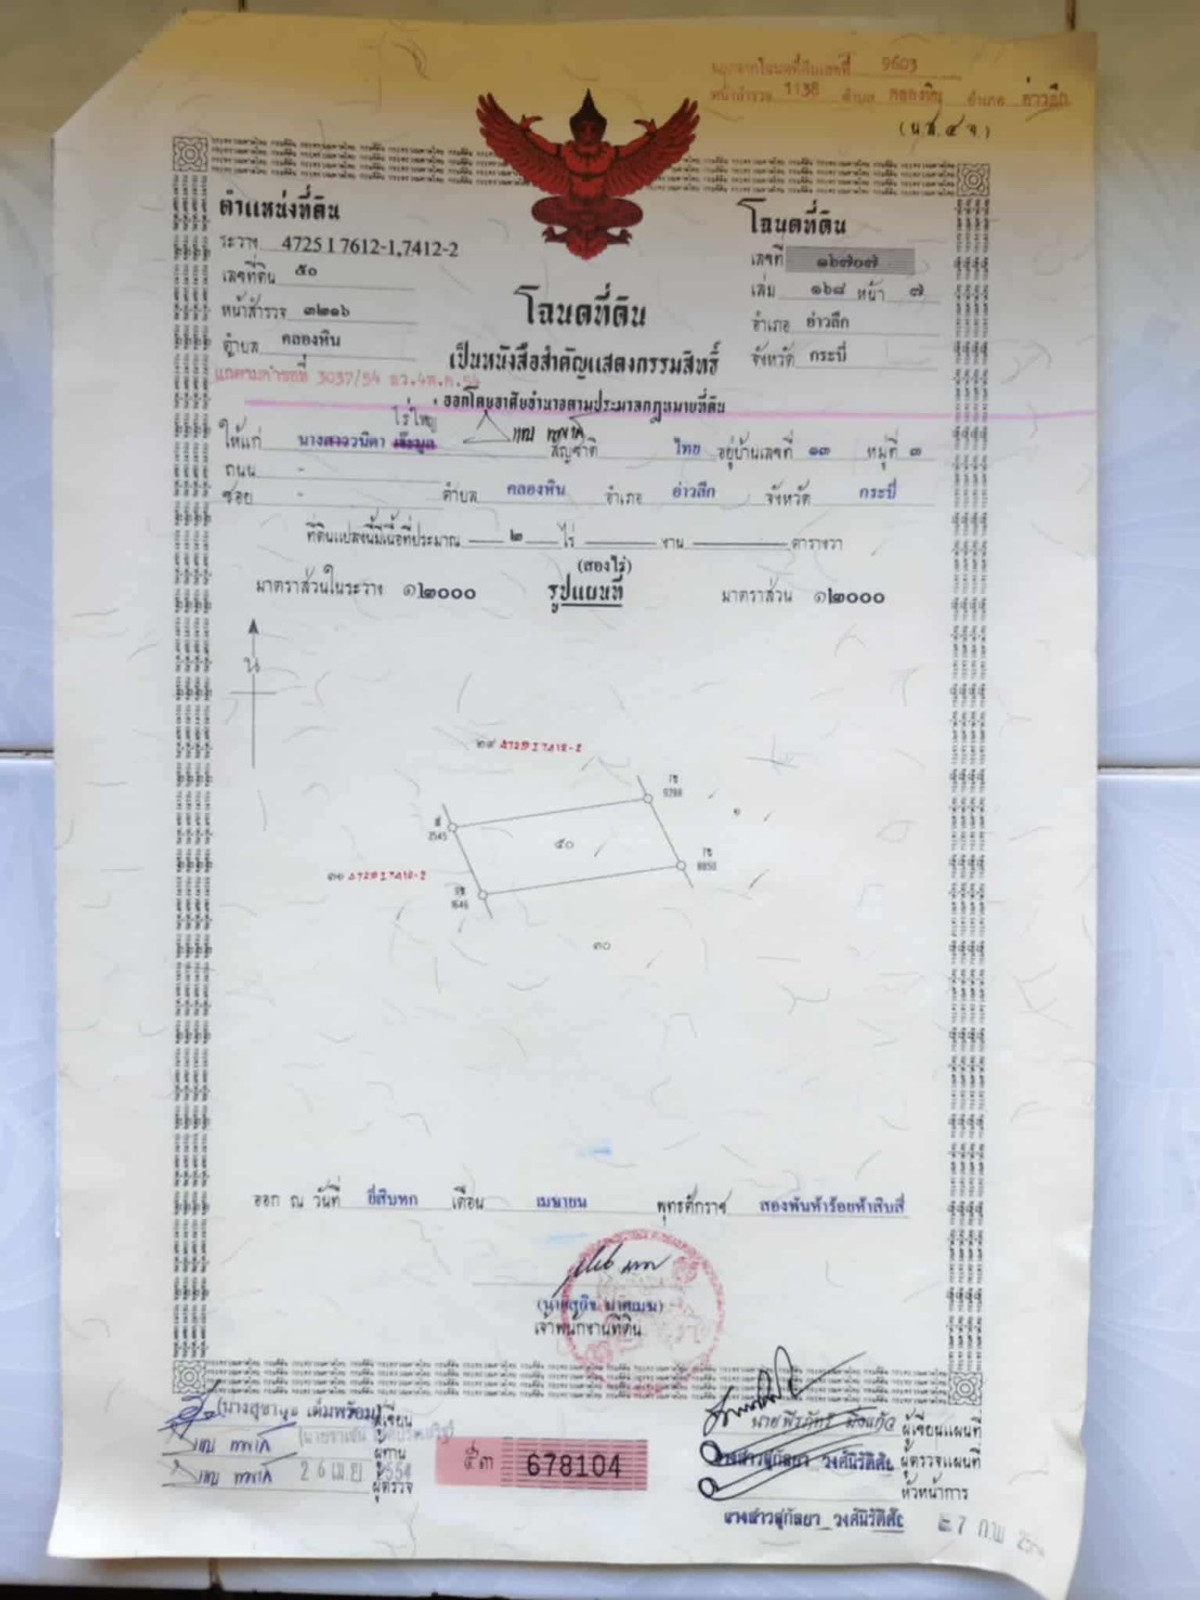 แยกจากโฉนดที่ดินเลขที่ 9603
หน้าสำรวจ 1138 ตำบล คลองหิน อำเภอ อ่าวลึก
(น.ส.๔ จ.)
ตำแหน่งที่ดิน
ระวาง 4725 I 7612-1,7412-2
เลขที่ดิน ๕๐
หน้าสำรวจ ๓๒๑๖
ตำบล คลองหิน
โฉนดที่ดิน
เลขที่ ๑๖๗๐๗
เล่ม ๑๖๘ หน้า ๗
อำเภอ อ่าวลึก
จังหวัด กระบี่
โฉนดที่ดิน
เป็นหนังสือสำคัญแสดงกรรมสิทธิ์
แก้ตามคำขอที่ 3037/54 ลว.4พ.ค.54
ออกโดยอาศัยอำนาจตามประมวลกฎหมายที่ดิน
ไร่ใหญ่
ให้แก่ นางสาววนิดา สัญชาติ ไทย อยู่บ้านเลขที่ ๑๓ หมู่ที่ ๓
ถนน -
ซอย - ตำบล คลองหิน อำเภอ อ่าวลึก จังหวัด กระบี่
ที่ดินแปลงนี้มีเนื้อที่ประมาณ ๒ ไร่ งาน ตารางวา
(สองไร่)
มาตราส่วนในระวาง ๑:๒๐๐๐ รูปแผนที่ มาตราส่วน ๑:๒๐๐๐
น
๒๙ 4725 I 7412-2
9288
๑
๕๐
8850
1646
๓๐
ออก ณ วันที่ ยี่สิบหก เดือน เมษายน พุทธศักราช สองพันห้าร้อยห้าสิบสี่
เจ้าพนักงานที่ดิน
ผู้เขียน
ผู้ทาน
26 เม.ย. 2554
ผู้ตรวจ
๕๓ 678104
ผู้เขียนแผนที่
นางสาวสุกัลยา วงศ์นิรัติศัย ผู้ตรวจแผนที่
หัวหน้าการ
นางสาวสุกัลยา วงศ์นิรัติศัย